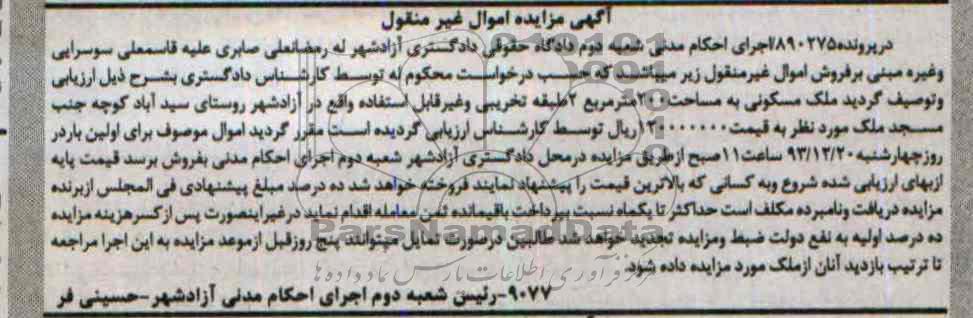 آگهی مزایده اموال غیر منقول
درپرونده۸۹۰۲۷۵/اجرای احکام مدنی شعبه دوم دادگاه حقوقی دادگستری آزادشهر له رمضانعلی صابری علیه قاسمعلی سوسرایی
وغیره مبنی برفروش اموال غیرمنقول زیر میباشد که حسب درخواست محکوم له توسط کارشناس دادگستری بشرح ذیل ارزیابی
وتوصیف گردید ملک مسکونی به مساحت۲۰۰مترمربع ۲طبقه تخریبی وغیرقابل استفاده واقع در آزادشهر روستای سید آباد کوچه جنب
مسجد ملک مورد نظر به قیمت۱۲۰۰۰۰۰۰۰ریال توسط کارشناس ارزیابی گردیده است مقرر گردید اموال موصوف برای اولین باردر
روزچهارشنبه۹۳/۱۲/۲۰ ساعت۱۱صبح ازطریق مزایده درمحل دادگستری آزادشهر شعبه دوم اجرای احکام مدنی بفروش برسد قیمت پایه
ازبهای ارزیابی شده شروع وبه کسانی که بالاترین قیمت را پیشنهاد نمایند فروخته خواهد شد ده درصد مبلغ پیشنهادی فی المجلس ازبرنده
مزایده دریافت ونامبرده مکلف است حداکثر تا یکماه نسبت بپرداخت باقیمانده ثمن معامله اقدام نماید درغیراینصورت پس از کسرهزینه مزایده
ده درصد اولیه به نفع دولت ضبط ومزایده تجدید خواهد شد طالبین درصورت تمایل میتوانند پنج روزقبل ازموعد مزایده به این اجرا مراجعه
تا ترتیب بازدید آنان ازملک مورد مزایده داده شود
۹۰۷۷-رئیس شعبه دوم اجرای احکام مدنی آزادشهر-حسینی فر
ParsNamadData
فرآوری اطلاعات پارس نماد داده ها